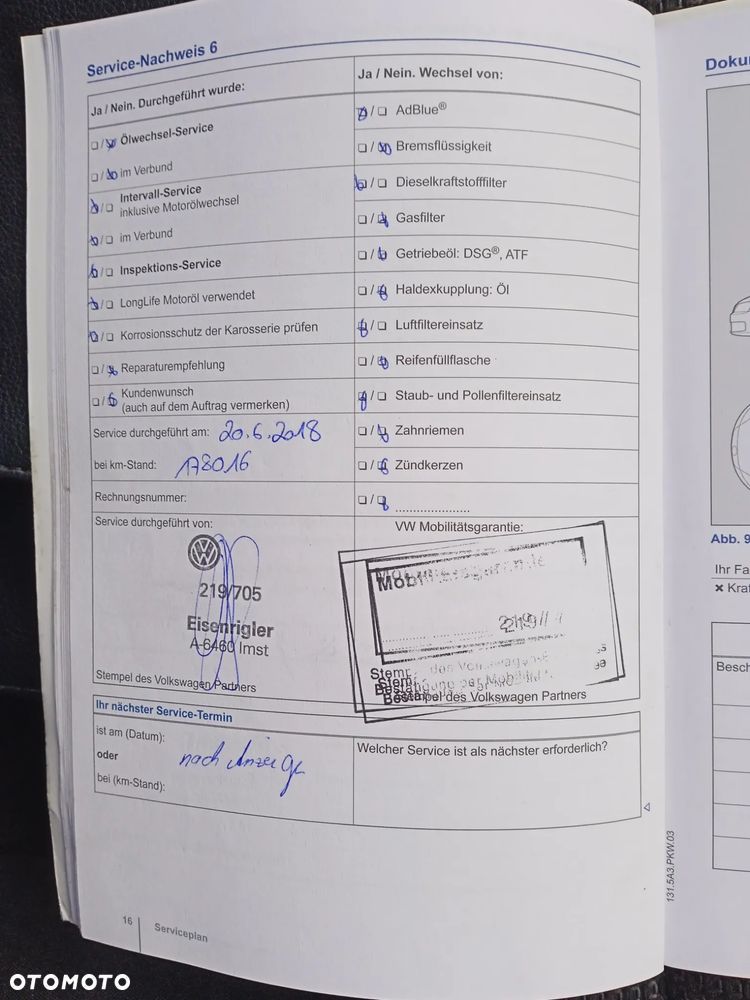 Service-Nachweis 6
Ja / Nein. Durchgeführt wurde:
Ölwechsel-Service
im Verbund
Intervall-Service
inklusive Motorölwechsel
im Verbund
Inspektions-Service
LongLife Motoröl verwendet
Korrosionsschutz der Karosserie prüfen
Reparaturempfehlung
Kundenwunsch
(auch auf dem Auftrag vermerken)
Service durchgeführt am: 20.6.2018
bei km-Stand: 178016
Rechnungsnummer:
Service durchgeführt von:
219/705
Eisenrigler
A-6460 Imst
Stempel des Volkswagen Partners
Ja / Nein. Wechsel von:
AdBlue®
Bremsflüssigkeit
Dieselkraftstofffilter
Gasfilter
Getriebeöl: DSG®, ATF
Haldexkupplung: Öl
Luftfiltereinsatz
Reifenfüllflasche
Staub- und Pollenfiltereinsatz
Zahnriemen
Zündkerzen
VW Mobilitätsgarantie:
Stempel des Volkswagen Partners
Ihr nächster Service-Termin
ist am (Datum):
oder
nach Anzeige
bei (km-Stand):
Welcher Service ist als nächster erforderlich?
131.5A3.PKW.03
16
Serviceplan
Doku
Abb. 9
Ihr Fa
× Kraf
Besch
OTOMOTO